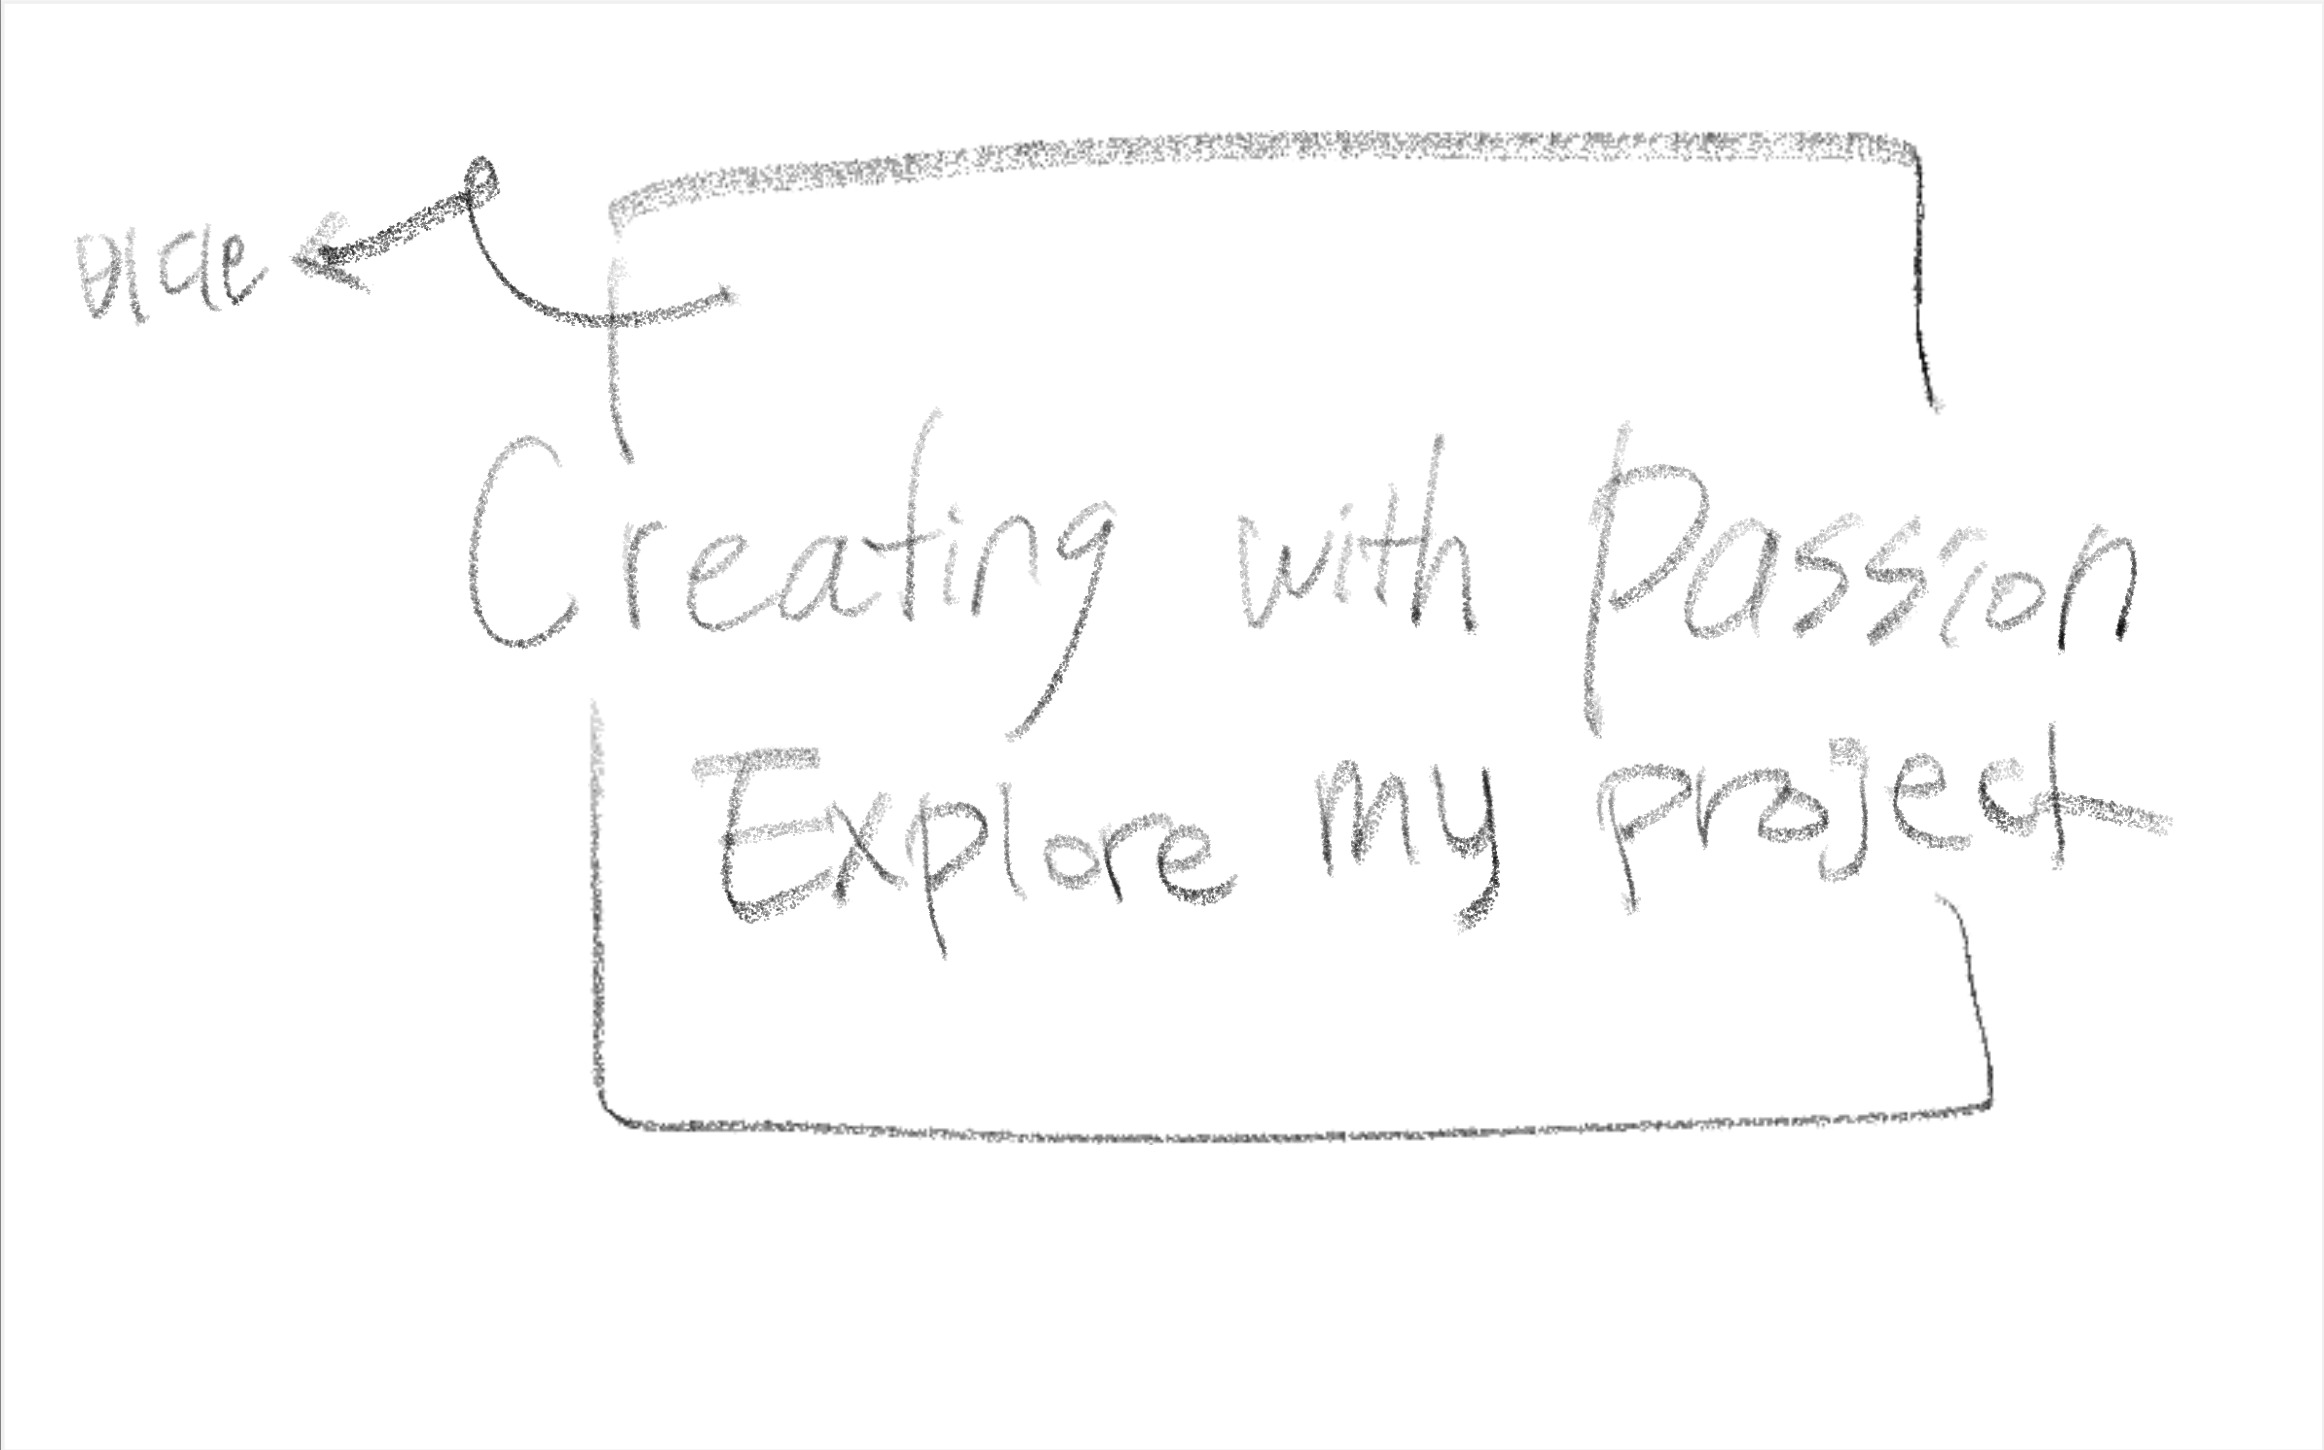 Creating with Passion
Explore my project